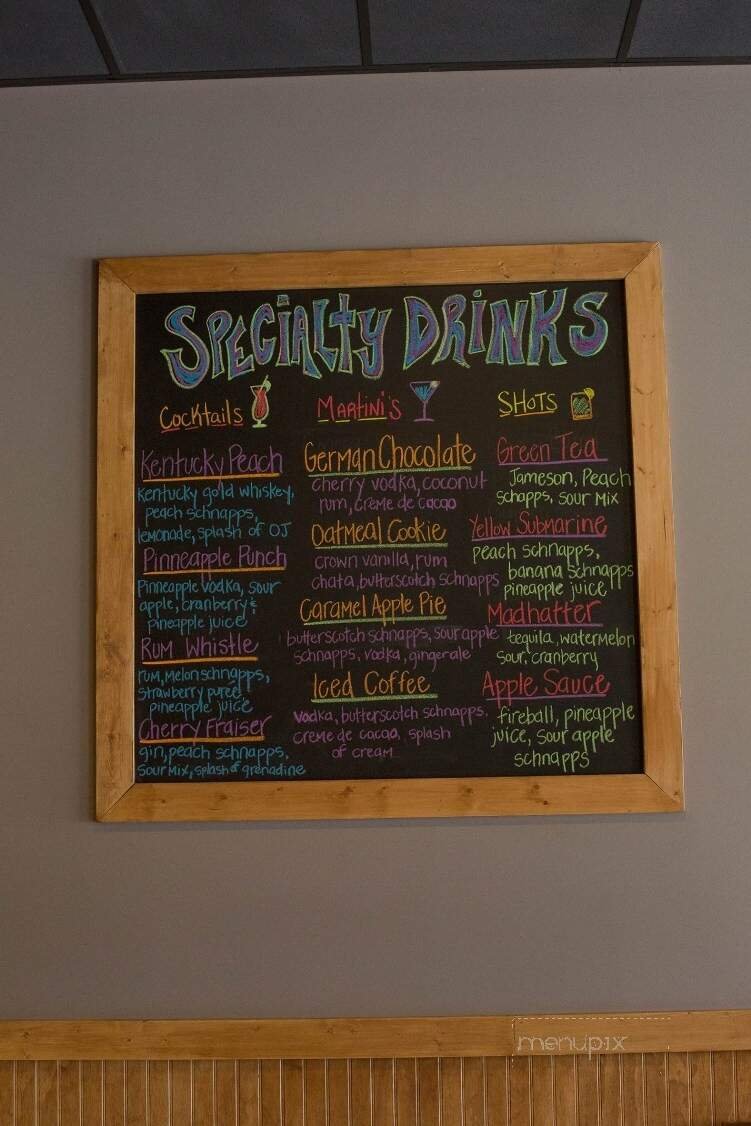 SPECIALTY DRINKS
Cocktails
Kentucky Peach
Kentucky gold whiskey,
peach schnapps,
lemonade, splash of OJ
Pinneapple Punch
Pinneapple vodka, sour
apple, cranberry &
pineapple juice
Rum Whistle
rum, melon schnapps,
strawberry puree,
pineapple juice
Cherry Fraiser
gin, peach schnapps,
sour mix, splash of grenadine
Martini's
German Chocolate
cherry vodka, coconut
rum, creme de cacao
Oatmeal Cookie
crown vanilla, rum
chata, butterscotch schnapps
Caramel Apple Pie
butterscotch schnapps, sour apple
schnapps, vodka, gingerale
Iced Coffee
Vodka, butterscotch schnapps,
creme de cacao, splash
of cream
SHOTS
Green Tea
Jameson, Peach
schapps, sour mix
Yellow Submarine
peach schnapps,
banana schnapps
pineapple juice
Madhatter
tequila, watermelon
sour, cranberry
Apple Sauce
fireball, pineapple
juice, sour apple
schnapps
menupix